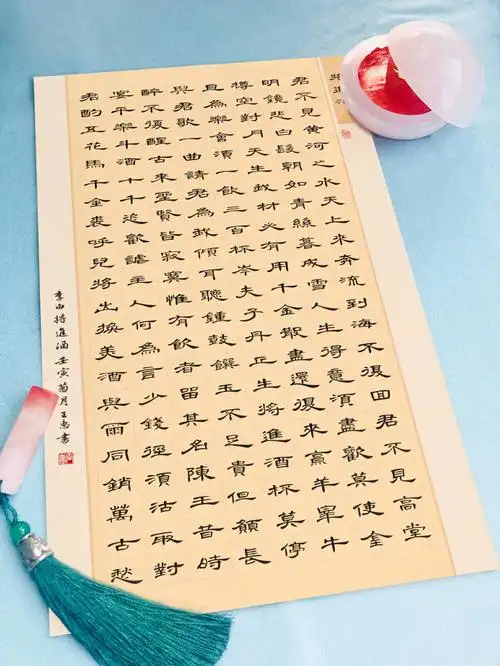 將進
君不見黃河之水天上來奔流到海不復回君不見高堂
明鏡悲白髮朝如青絲暮成雪人生得意須盡歡莫使金
樽空對月天生我材必有用千金散盡還復來烹羊宰牛
且為樂會須一飲三百杯岑夫子丹丘生將進酒杯莫停
與君歌一曲請君為我傾耳聽鍾鼓饌玉不足貴但願長
醉不復醒古來聖賢皆寂寞惟有飲者留其名陳王昔時
宴平樂斗酒十千恣歡謔主人何為言少錢徑須沽取對
君酌五花馬千金裘呼兒將出換美酒與爾同銷萬古愁
李白將進酒壬寅菊月王惠書